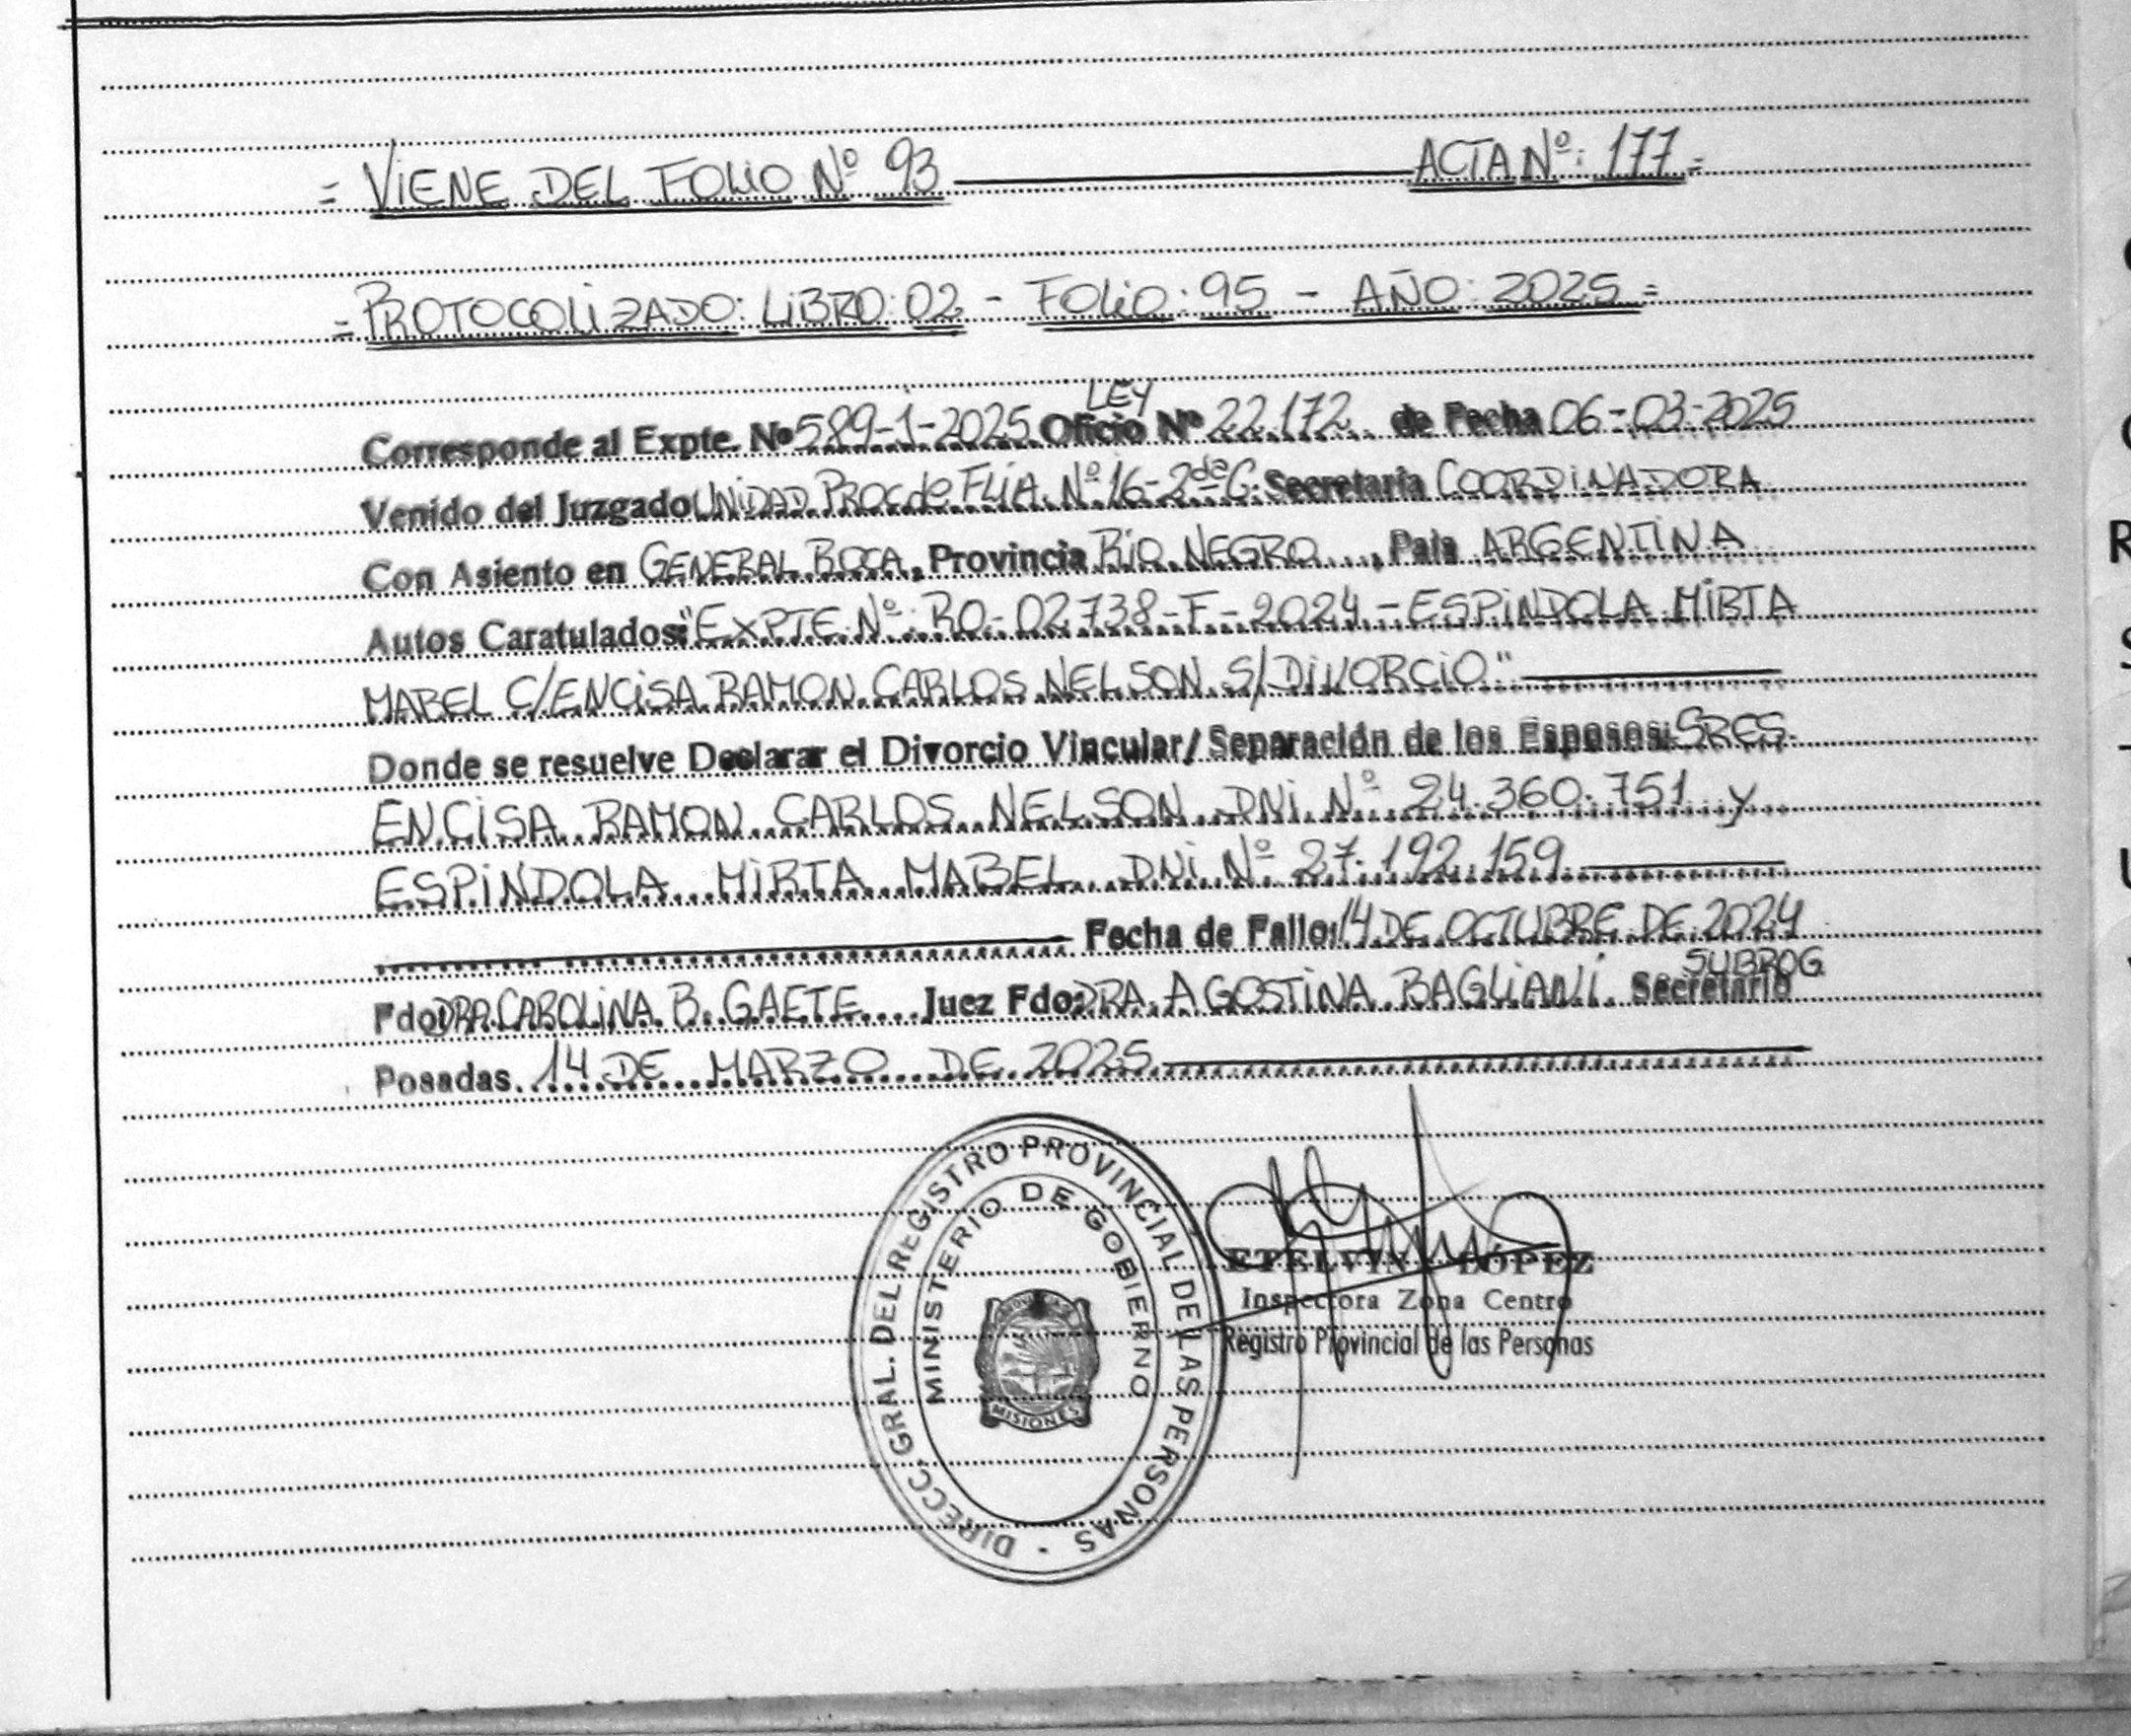 = VIENE DEL FOLIO Nº 93 ACTA Nº: 177 =
= PROTOCOLIZADO: LIBRO: 02 - FOLIO: 95 - AÑO: 2025 =
LEY
Corresponde al Expte. Nº 589-1-2025 Oficio Nº 22.172 de Fecha 06-03-2025
Venido del Juzgado UNIDAD PROC de FLIA. Nº 16-2da C. Secretaría COORDINADORA
Con Asiento en GENERAL ROCA, Provincia RÍO NEGRO, País ARGENTINA
Autos Caratulados: "EXPTE Nº: RO-02738-F-2024 - ESPINDOLA MIRTA
MABEL C/ENCISA RAMON CARLOS NELSON S/DIVORCIO"
Donde se resuelve Declarar el Divorcio Vincular/Separación de los Esposos: SRES.
ENCISA RAMON CARLOS NELSON DNI Nº 24.360.751 y
ESPINDOLA MIRTA MABEL DNI Nº 27.192.159
Fecha de Fallo: 14 DE OCTUBRE DE 2024
SUBROG
Fdo: DRA. CAROLINA B. GAETE Juez Fdo: DRA. AGOSTINA BAGLIANI. Secretario
Posadas. 14 DE MARZO DE 2025
DIRECC. GRAL. DEL REGISTRO PROVINCIAL DE LAS PERSONAS -
MINISTERIO DE GOBIERNO
MISIONES
LÓPEZ
Inspectora Zona Centro
Registro Provincial de las Personas